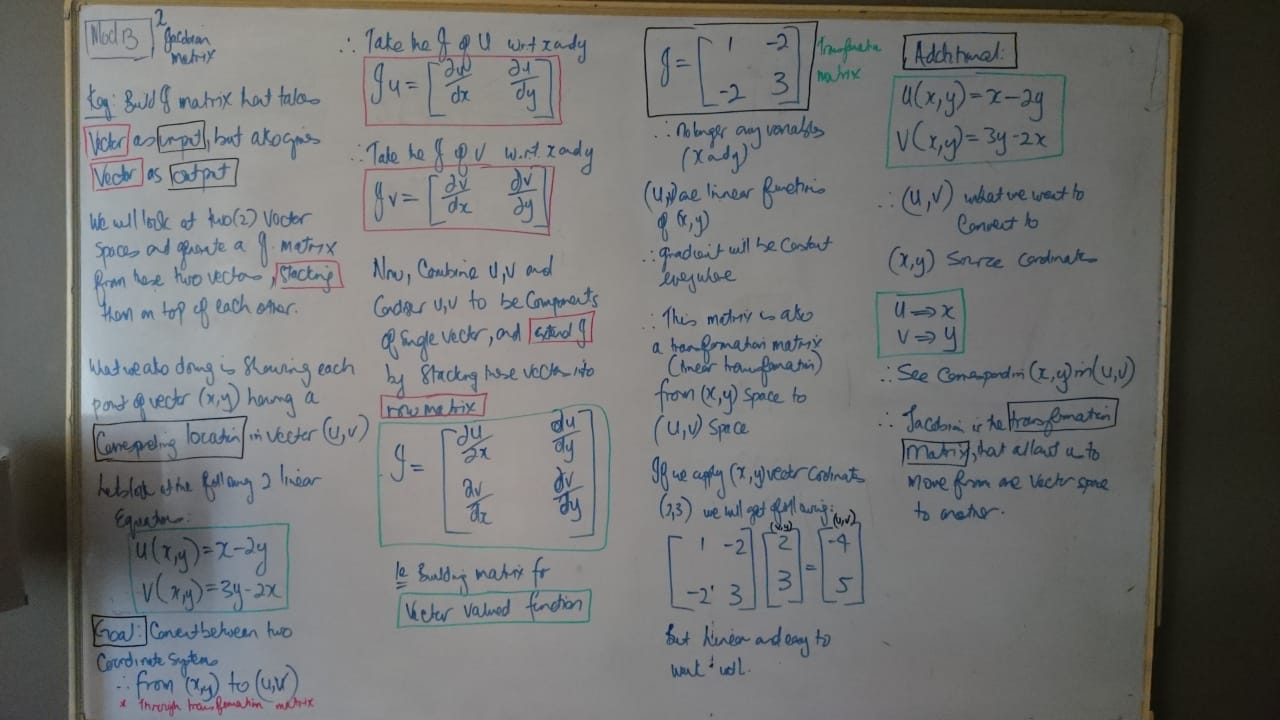 Mod 3 2 Jacobian
matrix
Key: Build J matrix that takes
Vector as input, but also gives
Vector as output
We will look at two(2) Vector
spaces and generate a J matrix
from these two vectors, stacking
them on top of each other.
What we also doing is showing each
point of vector (x,y) having a
Corresponding location in vector (u,v)
Lets look at the following 2 linear
Equations:
u(x,y)=x-2y
v(x,y)=3y-2x
Goal: Convert between two
Coordinate Systems
∴ from (x,y) to (u,v)
* Through transformation matrix
∴ Take the J of U w.r.t x and y
Ju = [∂u/dx ∂u/∂y]
∴ Take the J of V w.r.t. x and y
Jv = [∂v/dx ∂v/∂y]
Now, Combine U,V and
Consider U,V to be Components
of single vector, and extend J
by stacking these vectors into
row matrix
J = [∂u/∂x ∂u/∂y
∂v/dx ∂v/∂y]
ie Building matrix for
Vector valued function
J = [1 -2
-2 3]
Transformation
matrix
∴ no longer any variables
(x and y)
(u,v) are linear functions
of (x,y)
∴ gradient will be constant
everywhere
∴ This matrix is also
a transformation matrix
(linear transformation)
from (x,y) space to
(u,v) space
If we apply (x,y) vector cordinates
(2,3) we will get following:
(x,y) (u,v)
[1 -2] [2] = [-4]
[-2 3] [3] [5]
But linear and easy to
work with.
Additional:
u(x,y)=x-2y
v(x,y)=3y-2x
∴ (u,v) what we want to
Convert to
(x,y) Source Cordinates
u ⇒ x
v ⇒ y
∴ See Correspond in (x,y) in (u,v)
∴ Jacobian is the transformation
Matrix, that allows us to
move from one Vector space
to another.